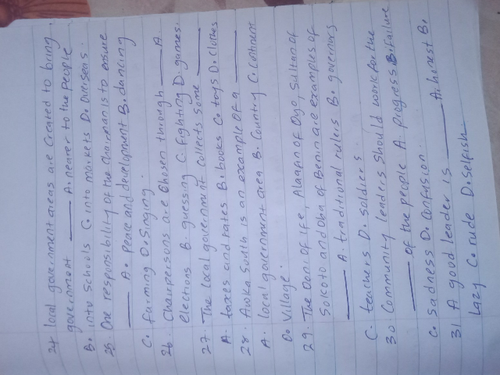 24 local government areas are created to bring
government ____ A. nearer to the people
B. into schools C. into markets D. overseas.
25 One responsibility of the chairman is to ensure
____ A. Peace and development B. dancing
C. farming D. Singing.
26 Chairpersons are chosen through ____ A.
elections B. guessing C. fighting D. games.
27 The local government collects some ____
A. taxes and rates B. books C. toys D. clothes
28 Awka South is an example of a ____
A. local government area B. Country C. continent
D. Village.
29 The Ooni of Ife, Alaafin of Oyo, Sultan of
Sokoto and Oba of Benin are examples of
____ A. traditional rulers B. governors
C. teachers D. soldiers.
30 Community leaders should work for the
____ of the people A. progress B. failure
C. sadness D. confusion.
31 A good leader is ____ A. honest B.
lazy C. rude D. selfish